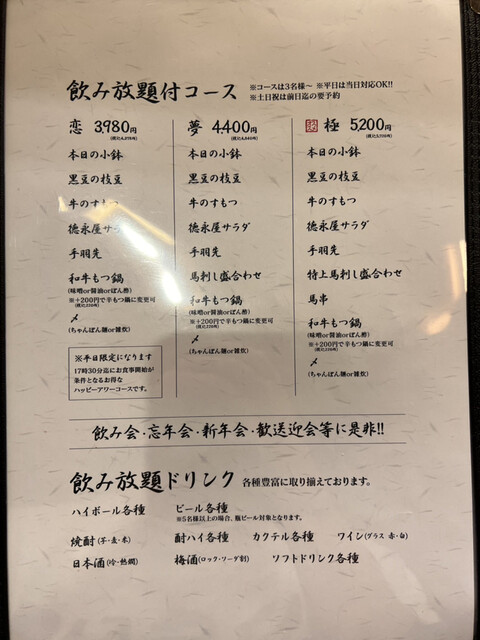 飲み放題付コース ※コースは3名様〜 ※平日は当日対応OK!!
※土日祝は前日迄の要予約
恋 3,980円
(税込4,378円)
本日の小鉢
黒豆の枝豆
牛のすもつ
徳永屋サラダ
手羽先
和牛もつ鍋
(味噌or醤油orぽん酢)
※+200円で辛もつ鍋に変更可
(税込220円)
〆
(ちゃんぽん麺or雑炊)
※平日限定になります
17時30分迄にお食事開始が
条件となるお得な
ハッピーアワーコースです。
夢 4,400円
(税込4,840円)
本日の小鉢
黒豆の枝豆
牛のすもつ
徳永屋サラダ
手羽先
馬刺し盛合わせ
和牛もつ鍋
(味噌or醤油orぽん酢)
※+200円で辛もつ鍋に変更可
(税込220円)
〆
(ちゃんぽん麺or雑炊)
極 5,200円
(税込5,720円)
本日の小鉢
黒豆の枝豆
牛のすもつ
徳永屋サラダ
手羽先
特上馬刺し盛合わせ
馬串
和牛もつ鍋
(味噌or醤油orぽん酢)
※+200円で辛もつ鍋に変更可
(税込220円)
〆
(ちゃんぽん麺or雑炊)
飲み会・忘年会・新年会・歓送迎会等に是非!!
飲み放題ドリンク 各種豊富に取り揃えております。
ハイボール各種 ビール各種
※5名様以上の場合、瓶ビール対象となります。
焼酎(芋・麦・米) 酎ハイ各種 カクテル各種 ワイン(グラス 赤・白)
日本酒(冷・熱燗) 梅酒(ロック・ソーダ割) ソフトドリンク各種